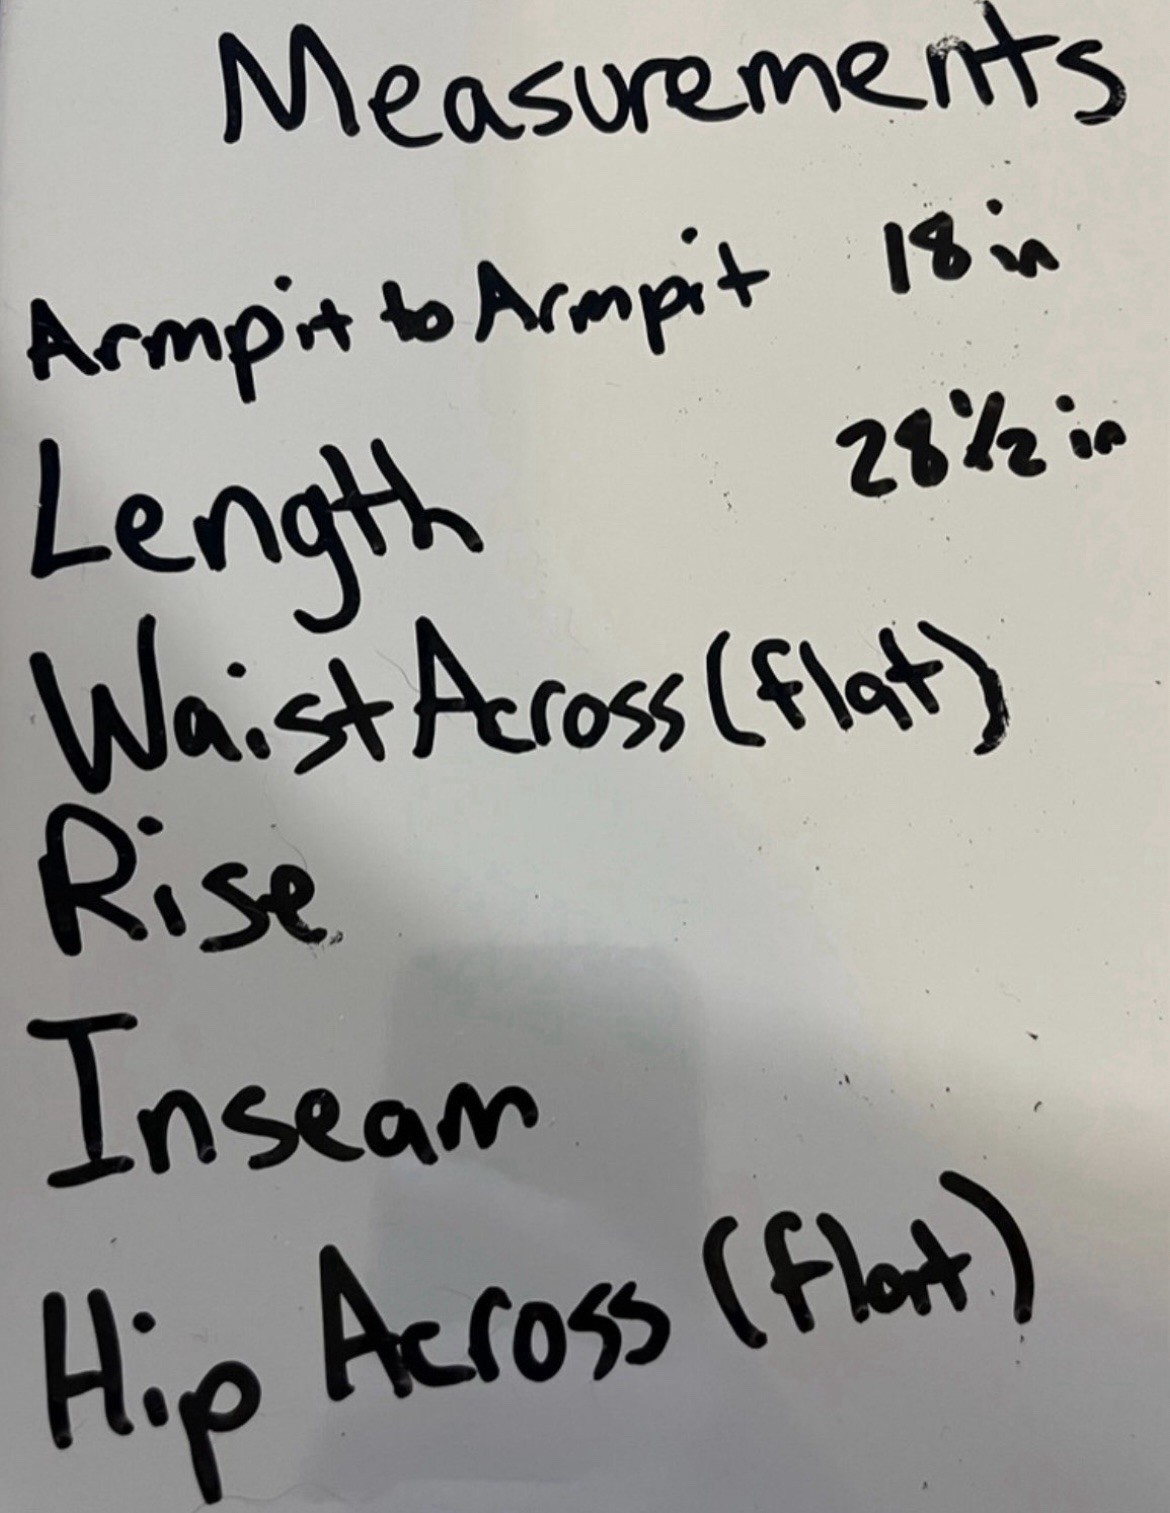 Measurements
Armpit to Armpit 18 in
Length 28 1/2 in
Waist Across (flat)
Rise
Inseam
Hip Across (flat)